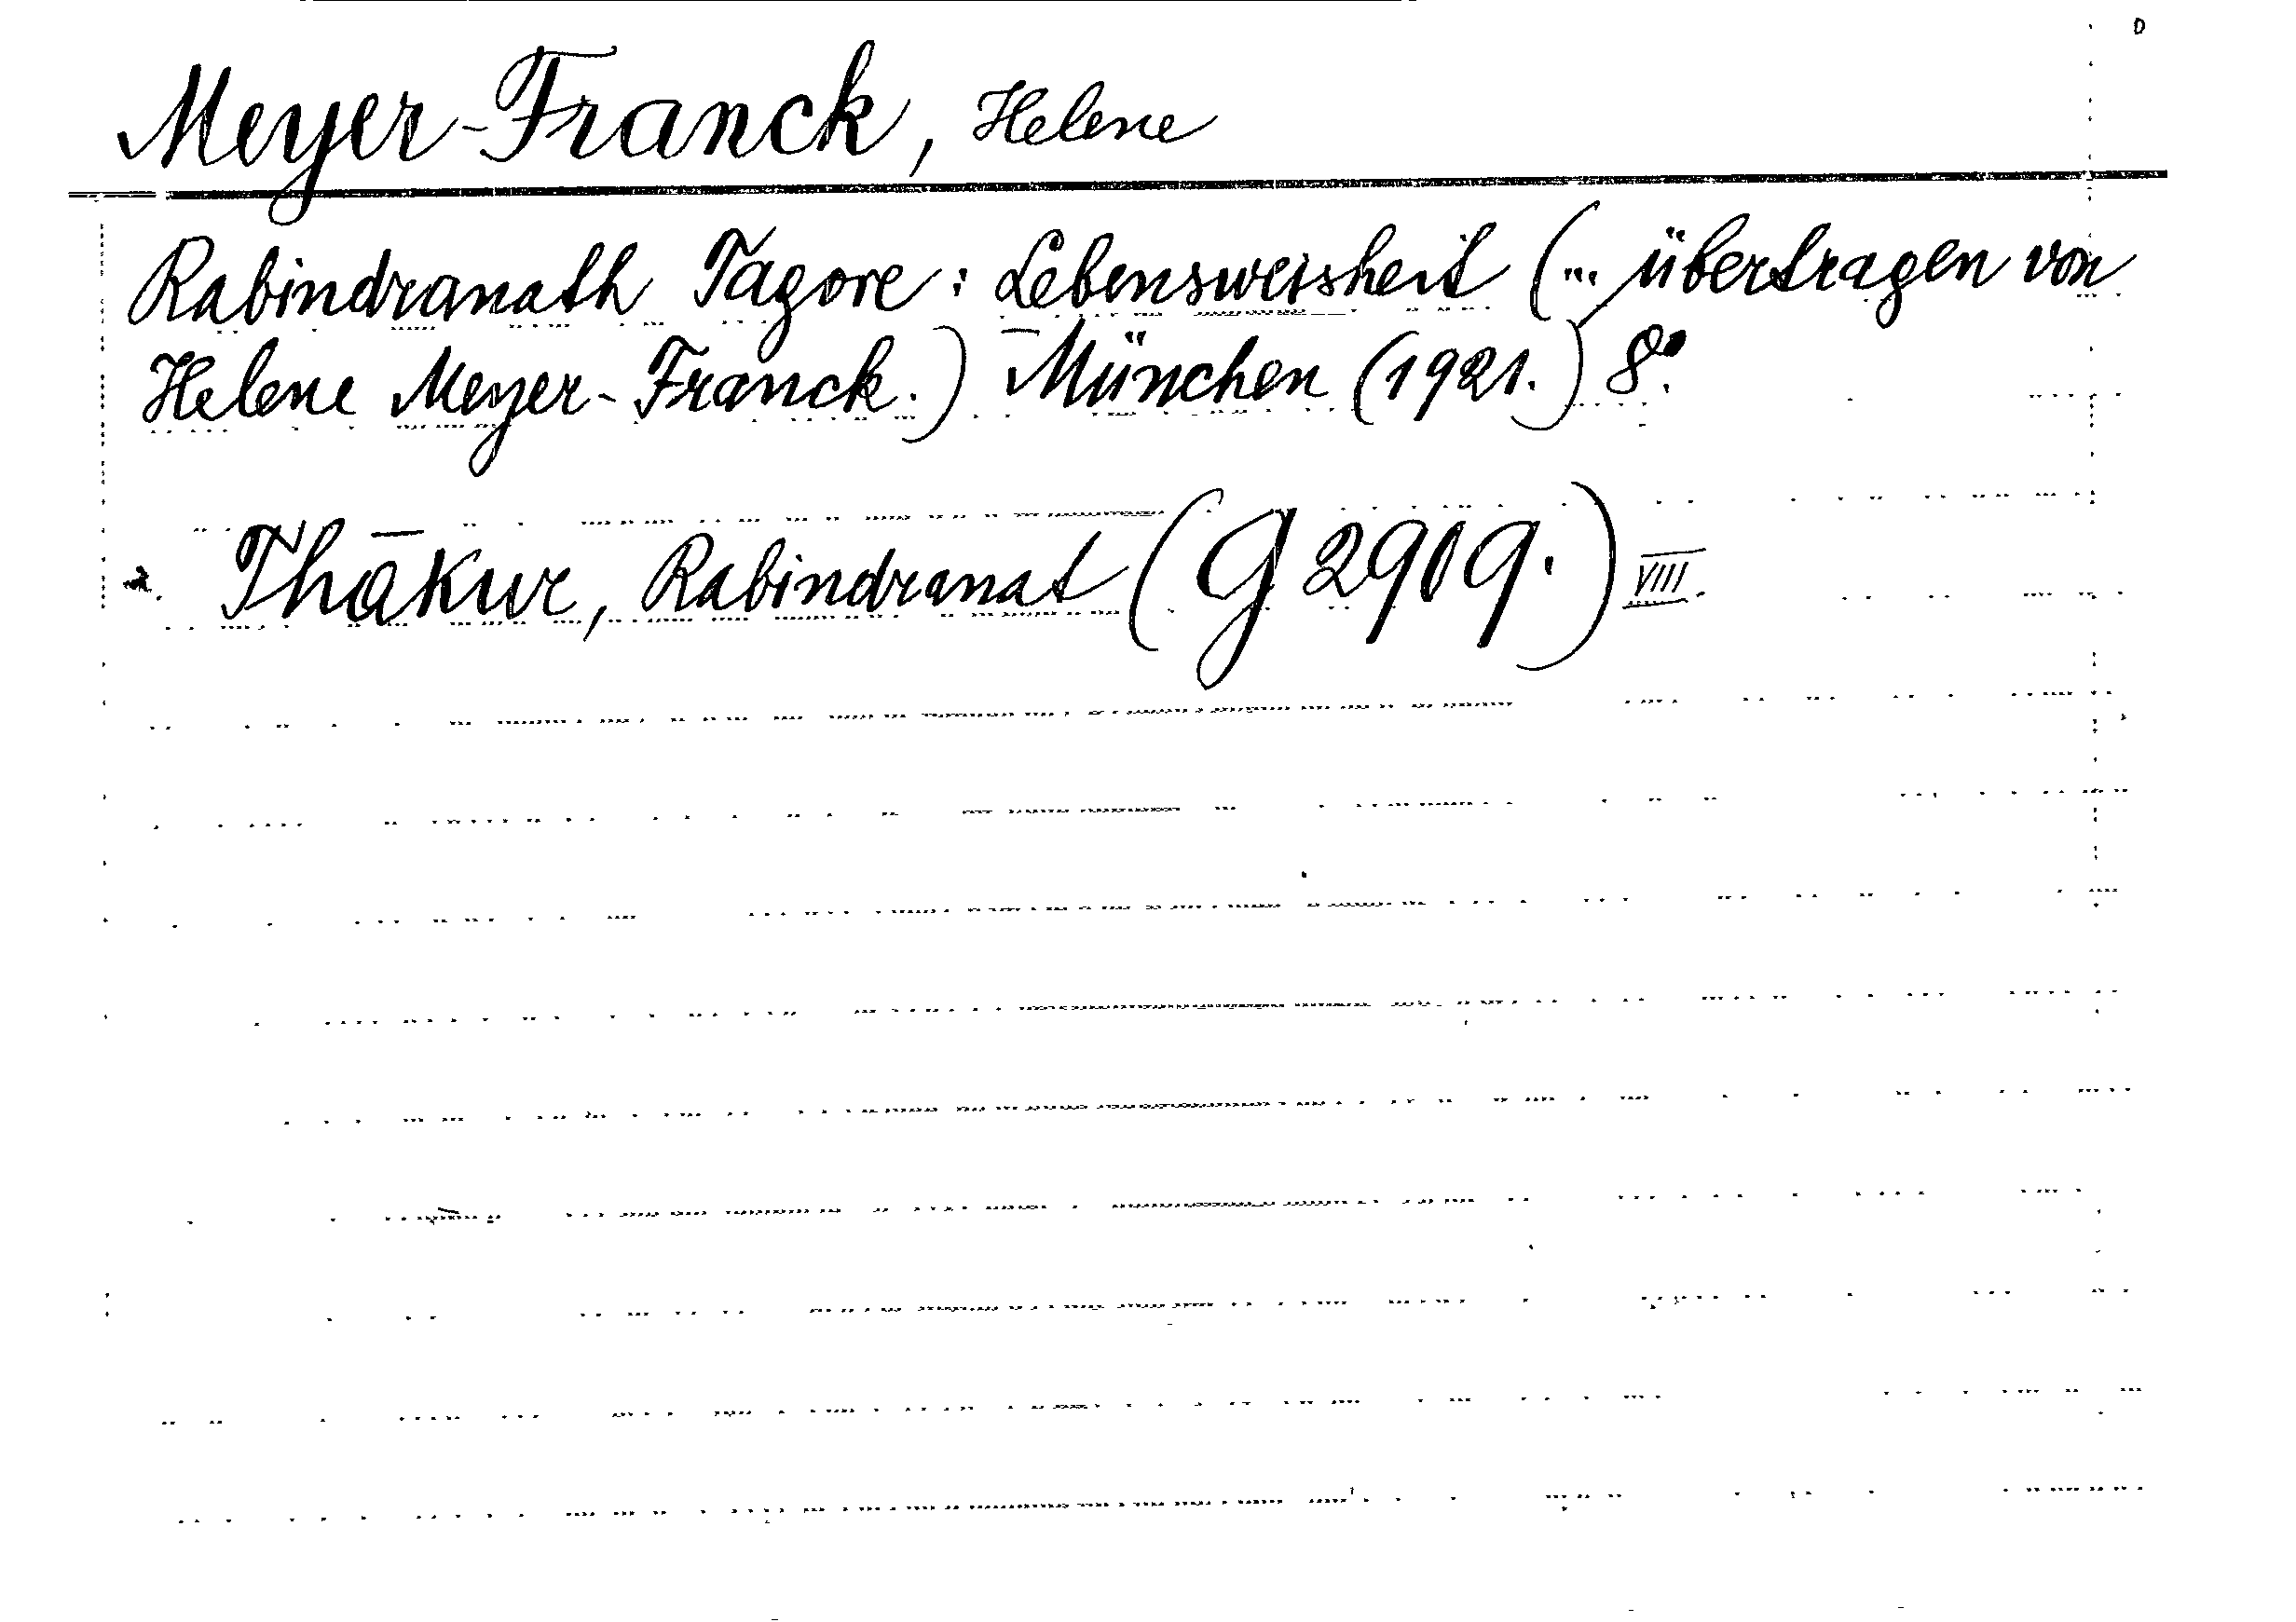 Meyer-Franck, Helene
Rabindranath Tagore: Lebensweisheit (... übertragen von
Helene Meyer-Franck.) München (1921.) 8°.
Thākur, Rabindranat (G 2909.) VIII.